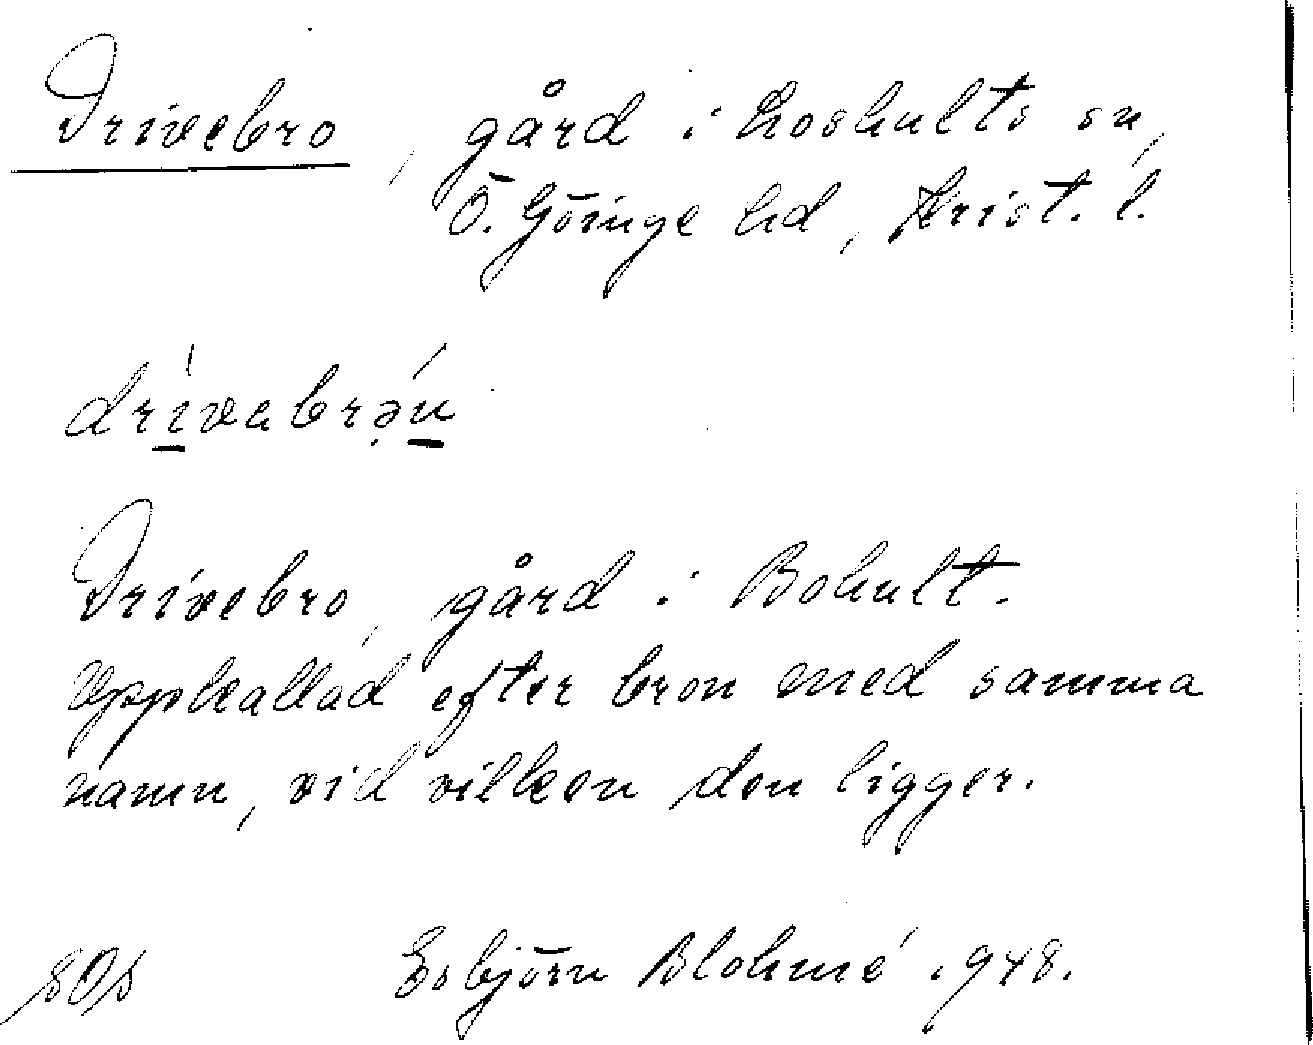 Drivebro, gård i Loshults sn,
Ö. Göinge hd, Krist. l.
drívebrə́u
Drivebro, gård i Bohult.
Uppkallad efter bron med samma
namn, vid vilken den ligger.
Esbjörn Blohmé 1948.